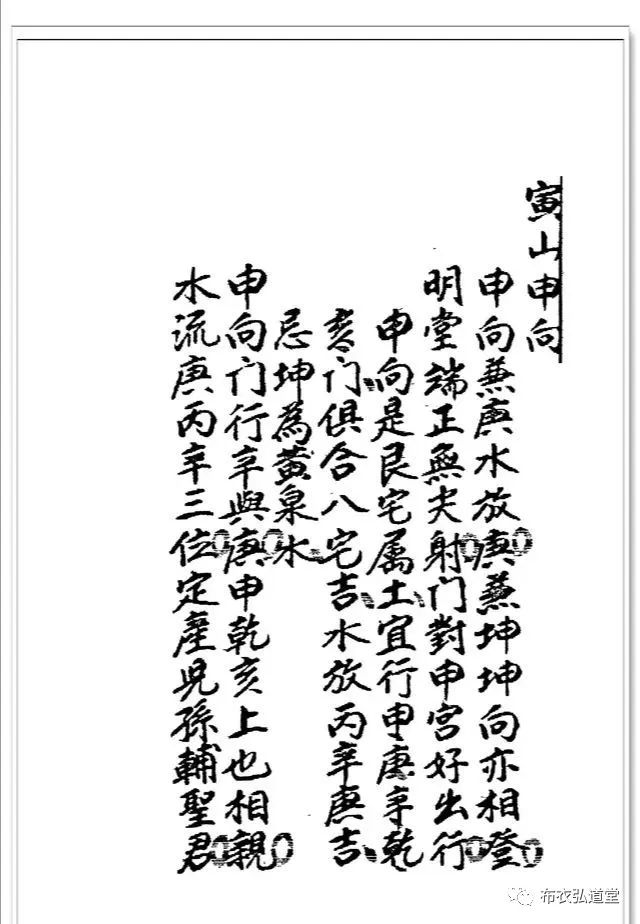 寅山申向
申向兼庚水放庚兼坤坤向亦相登
明堂端正無夫射門對申宮好出行
申向是艮宅属土宜行申庚辛乾
亥门俱合八宅吉水放丙辛庚吉
忌坤為黄泉水
申向门行辛與庚申乾亥上也相親
水流庚丙辛三位定產児孫輔聖君
布衣弘道堂